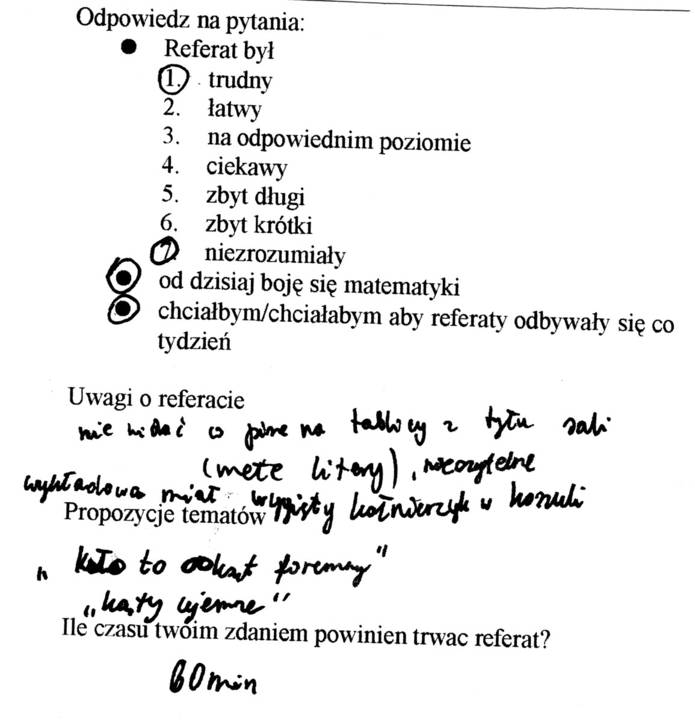 Odpowiedz na pytania:
● Referat był
1. trudny
2. łatwy
3. na odpowiednim poziomie
4. ciekawy
5. zbyt długi
6. zbyt krótki
7. niezrozumiały
● od dzisiaj boję się matematyki
● chciałbym/chciałabym aby referaty odbywały się co
tydzień
Uwagi o referacie
nie widać co pisze na tablicy z tyłu sali
(małe litery), nieczytelne
wykładowca miał wygięty kołnierzyk w koszuli
Propozycje tematów
"koło to foremny"
„kąty ujemne"
Ile czasu twoim zdaniem powinien trwac referat?
60 min